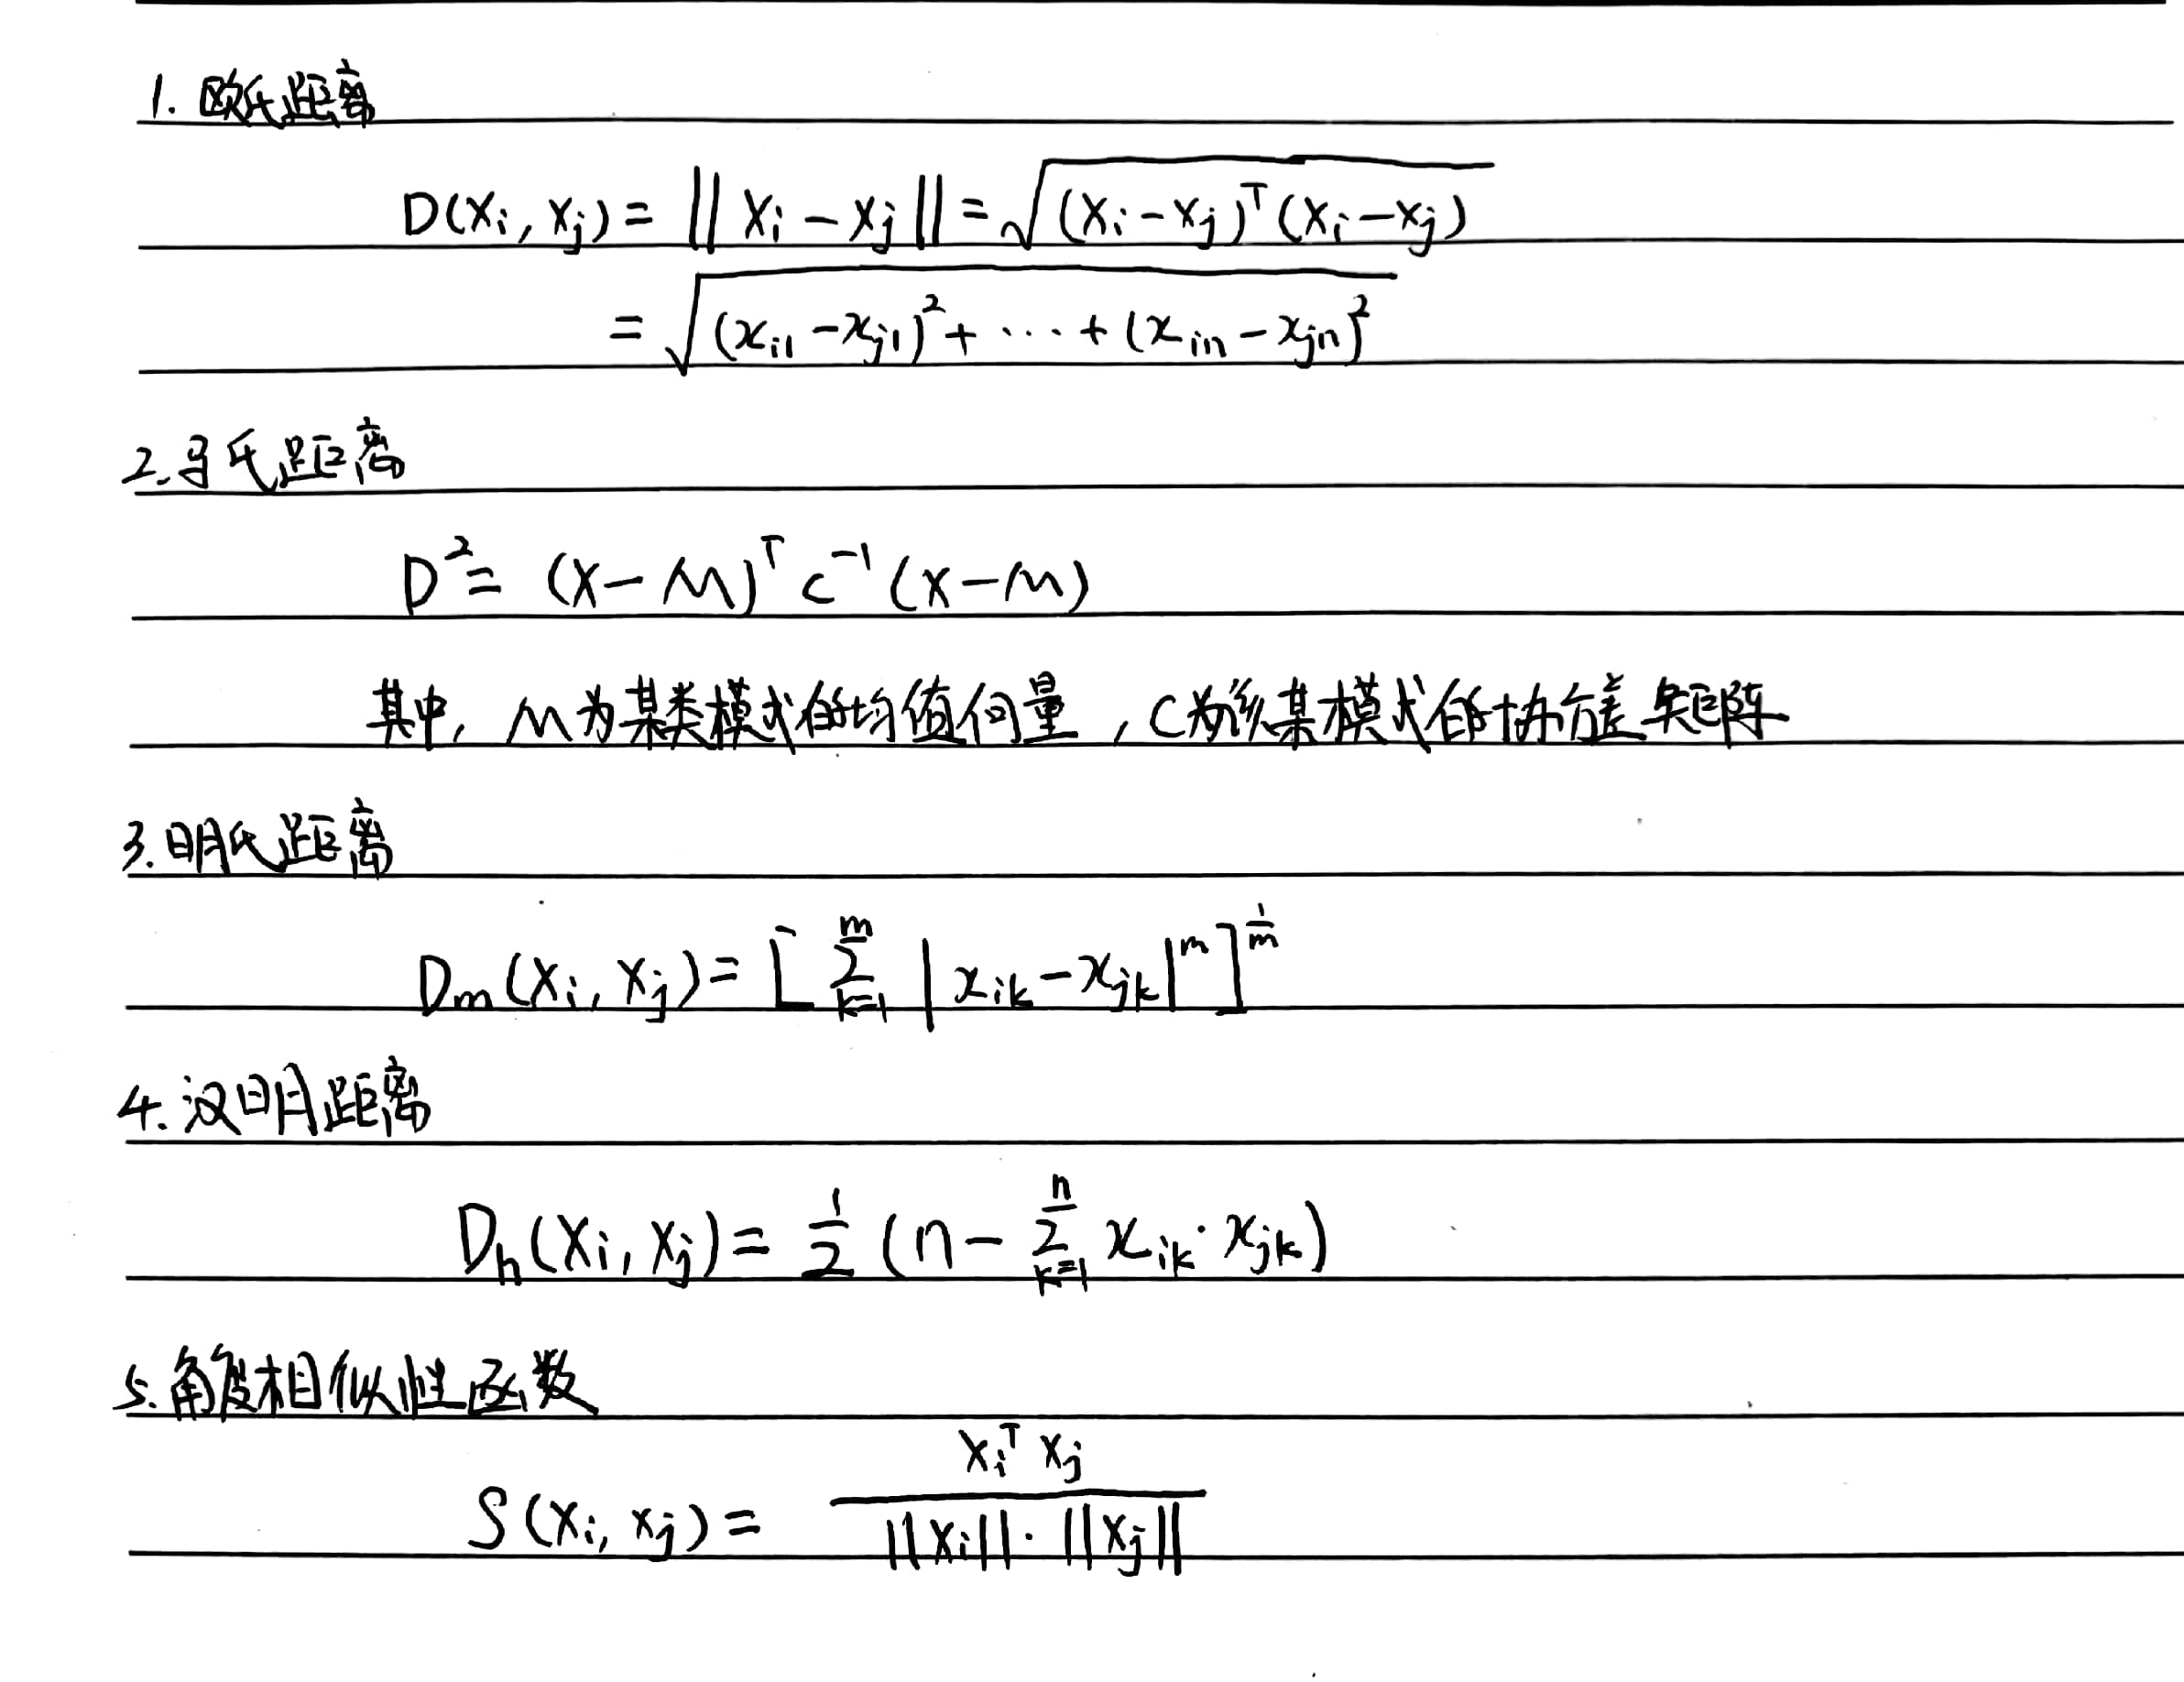 1. 欧氏距离
D(Xi, Xj) = || Xi - Xj || = √(Xi - Xj)ᵀ(Xi - Xj)
= √(xi1 - xj1)² + ··· + (xin - xjn)²
2. 马氏距离
D² = (X - M)ᵀ C⁻¹ (X - M)
其中, M为某类模式的均值向量, C为该某模式的协方差矩阵
3. 明氏距离
Dm(Xi, Xj) = [ Σ_{k=1}^{m} | xik - xjk |ᵐ ]^{1/m}
4. 汉明距离
Dh(Xi, Xj) = 1/2 (n - Σ_{k=1}^{n} xik · xjk)
5. 角度相似性函数
S(Xi, Xj) = Xiᵀ Xj / ||Xi|| · ||Xj||